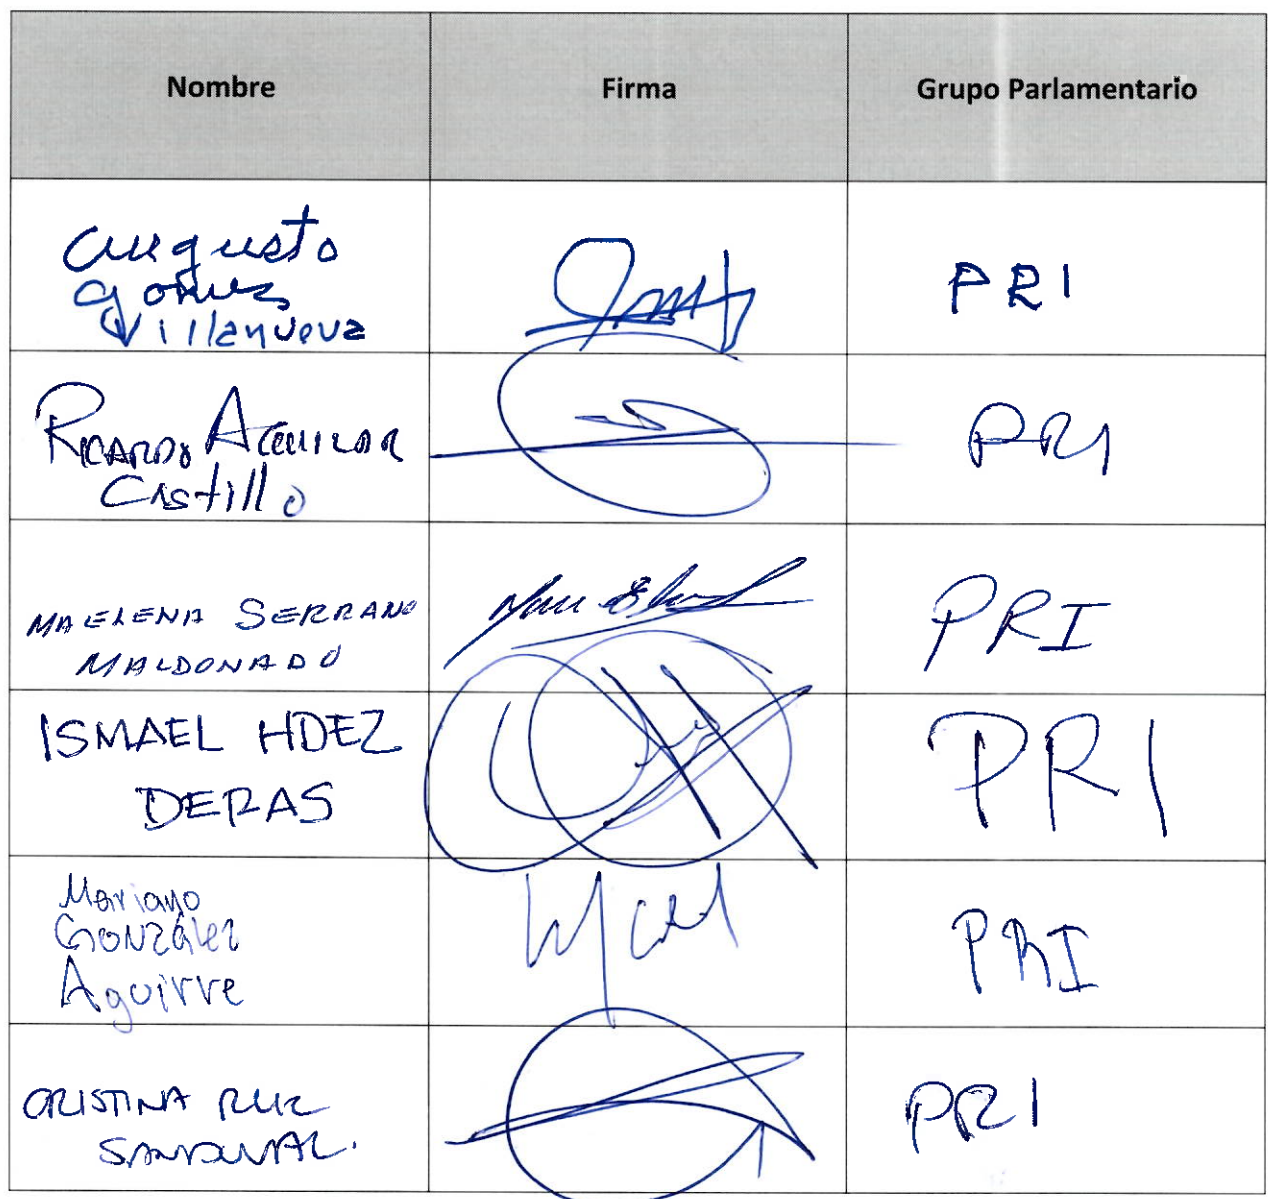 Nombre Firma Grupo Parlamentario
Augusto
Gómez
Villanueva
PRI
RICARDO AGUILAR
Castillo
PRI
MA ELENA SERRANO
MALDONADO
PRI
ISMAEL HDEZ
DERAS
PRI
Mariano
González
Aguirre
PRI
CRISTINA RUIZ
SANDOVAL.
PRI